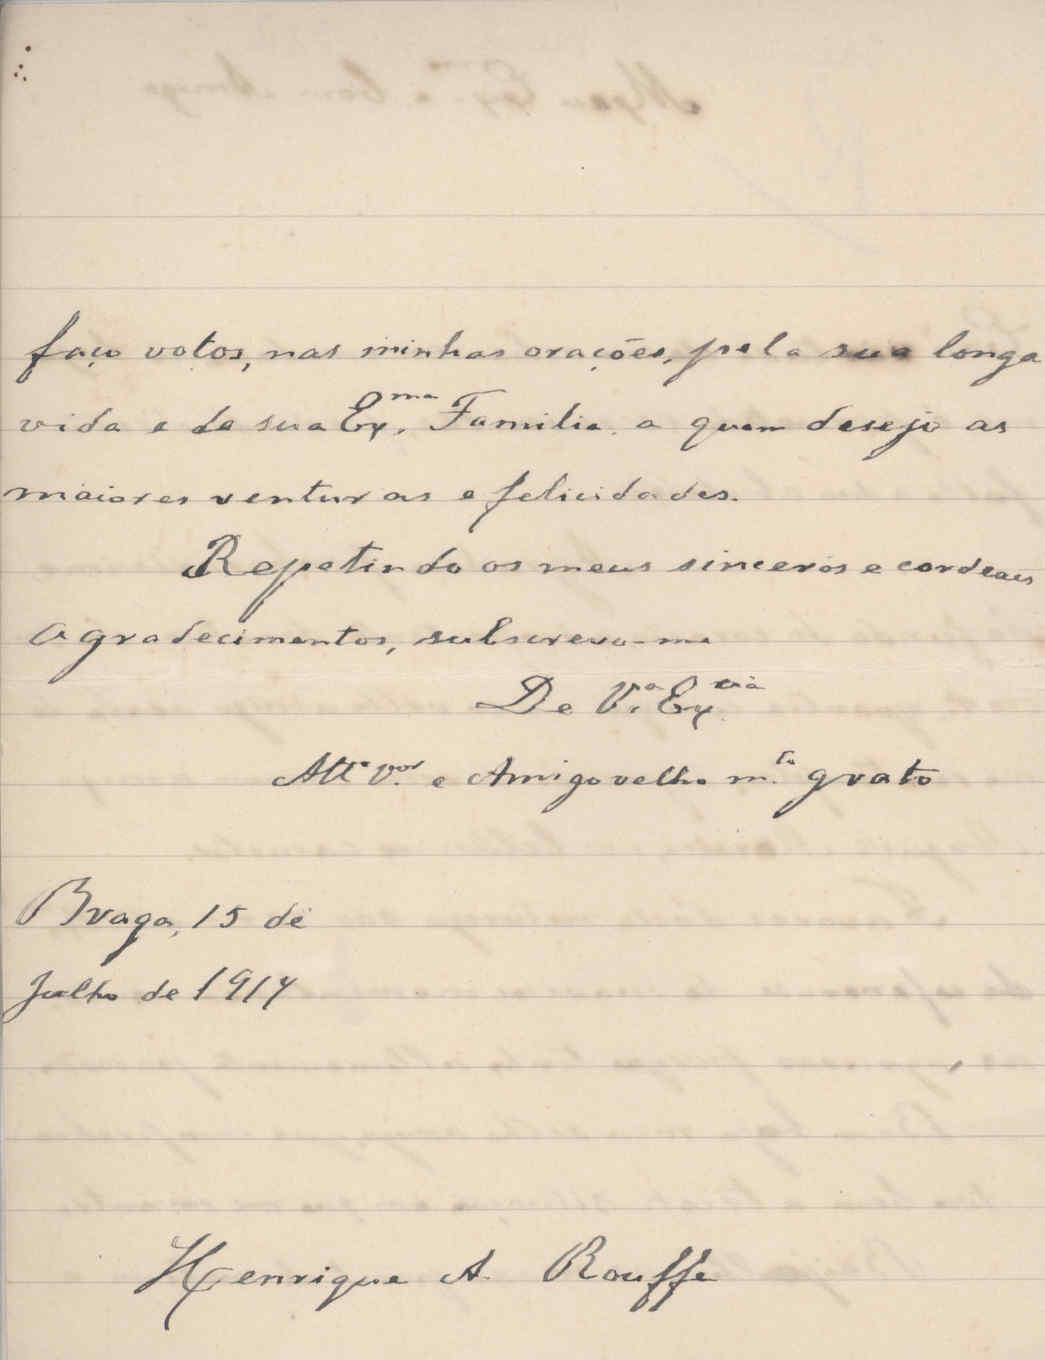 faço votos, nas minhas orações, pela sua longa
vida e de sua Ex.ma Familia, a quem desejo as
maiores venturas e felicidades.
Repetindo os meus sinceros e cordeaes
agradecimentos, subscrevo-me
De V.a Ex.cia
Att.o V.or e Amigo velho m.to grato
Braga, 15 de
Julho de 1917
Henrique A. Rouffe